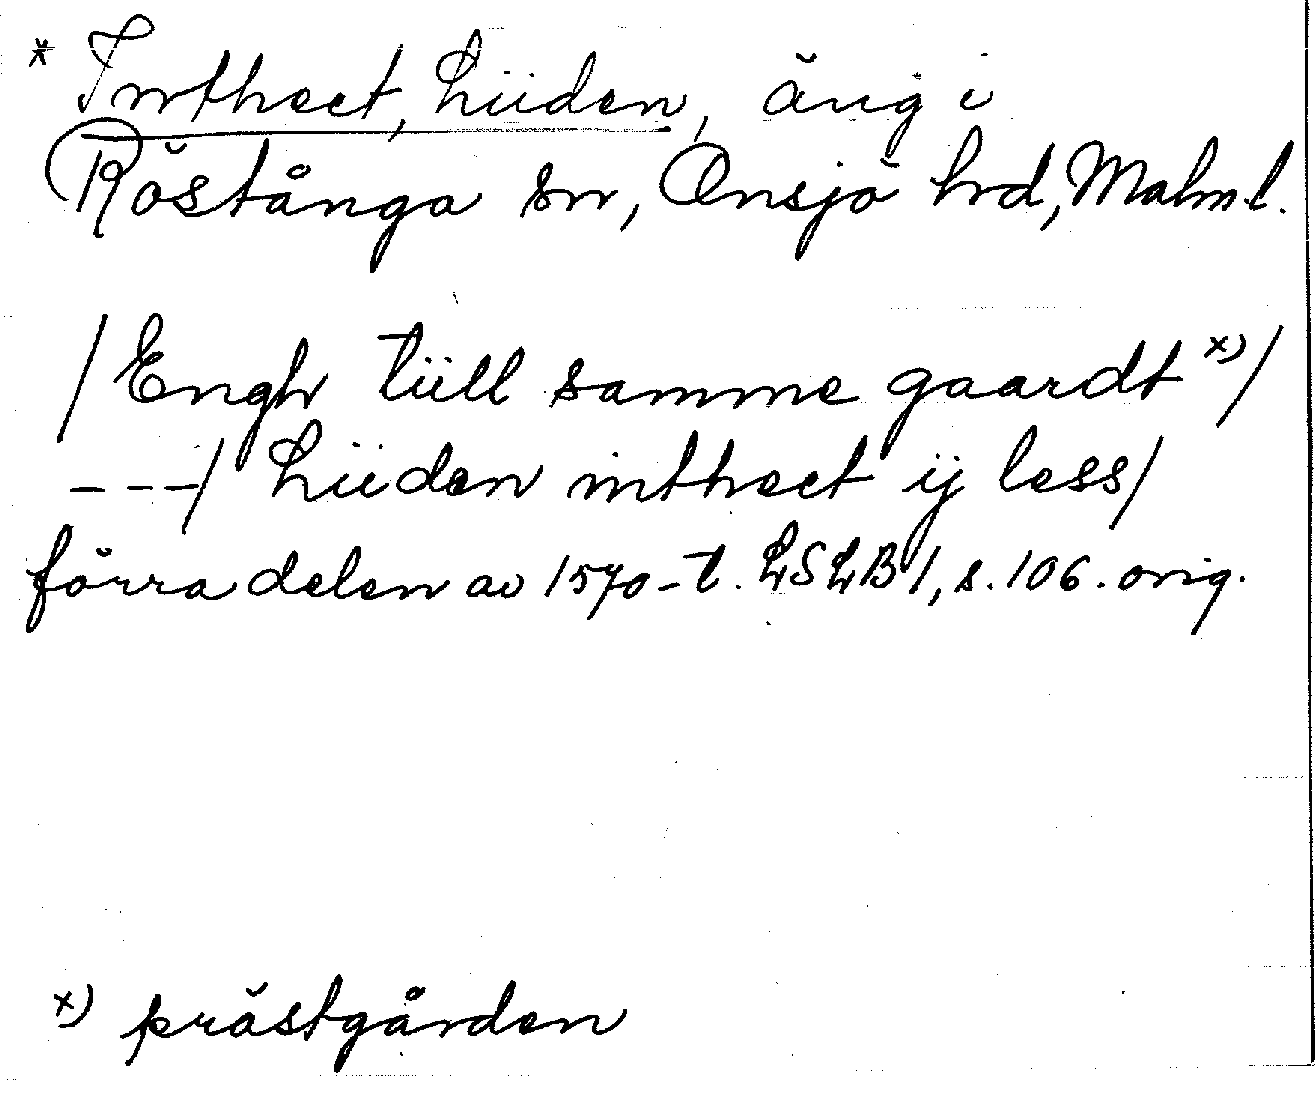 * Inthect, Liiden, äng i
Röstånga sn, Onsjö hrd, Malm.l.
/Engh tiill samme gaardt x)/
---/ Liiden inthect ij less/
förra delen av 1570-t. LSLB 1, s. 106. orig.
x) prästgården